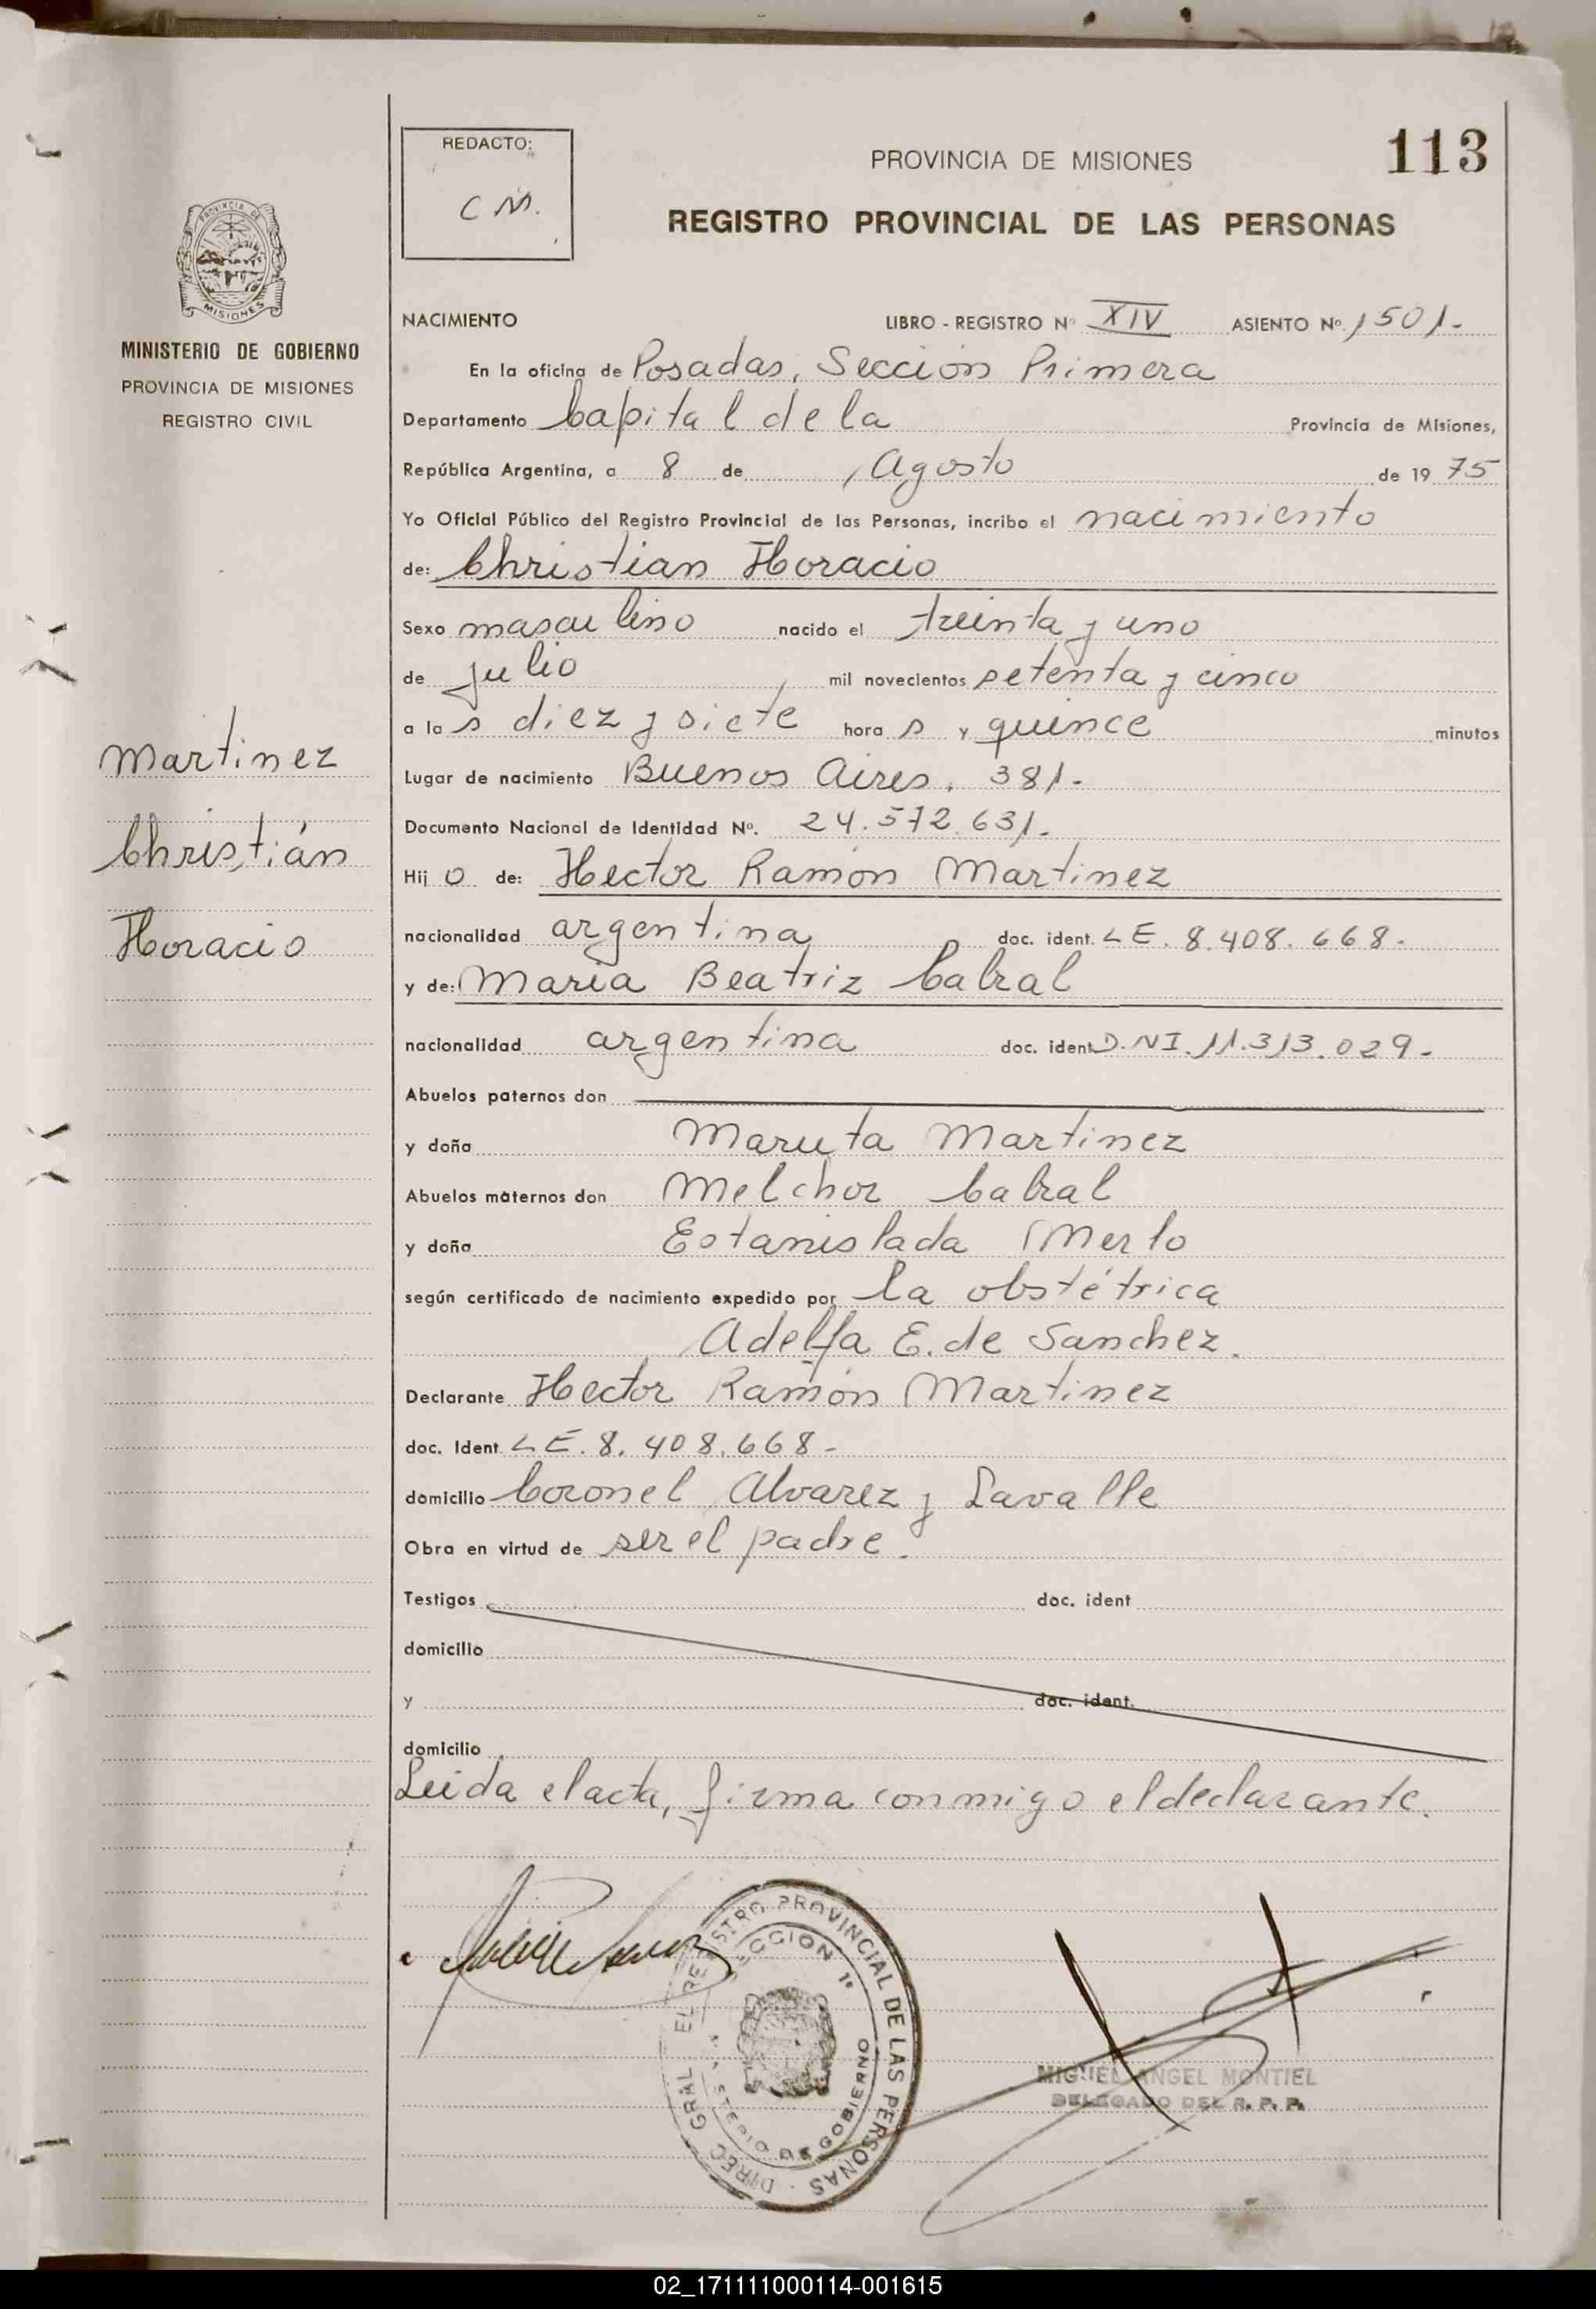 REDACTO:
C M.
PROVINCIA DE MISIONES
113
REGISTRO PROVINCIAL DE LAS PERSONAS
PROVINCIA DE
MISIONES
MINISTERIO DE GOBIERNO
PROVINCIA DE MISIONES
REGISTRO CIVIL
Martinez
Christián
Horacio
NACIMIENTO LIBRO - REGISTRO Nº XIV ASIENTO Nº. 1501.-
En la oficina de Posadas, Sección Primera
Departamento Capital de la Provincia de Misiones,
República Argentina, a 8 de Agosto de 1975
Yo Oficial Público del Registro Provincial de las Personas, incribo el nacimiento
de: Christian Horacio
Sexo masculino nacido el treinta y uno
de julio mil novecientos setenta y cinco
a las diez y siete horas y quince minutos
Lugar de nacimiento Buenos Aires, 381.-
Documento Nacional de Identidad Nº. 24.572.631.-
Hijo de: Hector Ramón Martinez
nacionalidad argentina doc. ident. LE. 8.408.668.-
y de: Maria Beatriz Cabral
nacionalidad argentina doc. ident D.NI.11.313.029.-
Abuelos paternos don
y doña Maruta Martinez
Abuelos maternos don Melchor Cabral
y doña Estanislada Merlo
según certificado de nacimiento expedido por la obstétrica
Adelfa E. de Sanchez.
Declarante Hector Ramón Martinez
doc. Ident. LE.8.408.668-
domicilio Coronel Alvarez y Lavalle
Obra en virtud de ser el padre.
Testigos doc. ident
domicilio
y doc. ident.
domicilio
Leida el acta, firma conmigo el declarante.
DIREC GRAL EL REGISTRO PROVINCIAL DE LAS PERSONAS
SECCION 1º
DE GOBIERNO
MIGUEL ANGEL MONTIEL
DELEGADO DEL R. P. P.
02_171111000114-001615